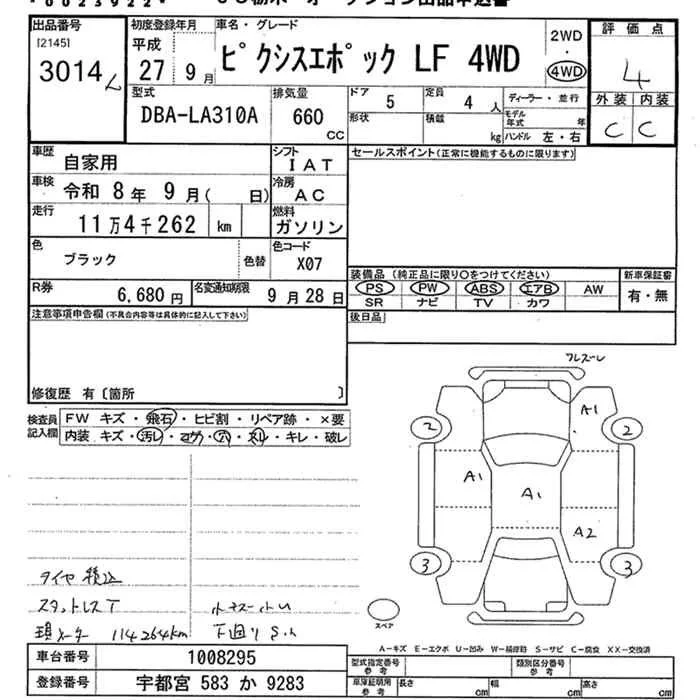 出品番号
[2145]
3014
初度登録年月
平成
27 9月
車名・グレード
ピクシスエポック LF 4WD
2WD
・
4WD
評価点
4
外装 内装
C C
型式
DBA-LA310A
排気量
660
CC
ドア
5
定員
4人
ディーラー・並行
形状
積載
kg
モデル年式
年
ハンドル 左・右
車歴
自家用
シフト
IAT
車検
令和 8年 9月( 日)
冷房
AC
走行
11万4千262 km
燃料
ガソリン
色
ブラック
色替
色コード
X07
R券
6,680円
名変通知期限
9月28日
セールスポイント(正常に機能するものに限ります)
装備品 (純正品に限り○をつけてください)
PS PW ABS エアB AW
SR ナビ TV カワ
新車保証書
有・無
後日品
注意事項申告欄(不具合内容等は具体的に記入して下さい)
修復歴 有〔箇所 〕
検査員記入欄
FW キズ・飛石・ヒビ割・リペア跡・×要
内装 キズ・汚レ・コゲ・穴・スレ・キレ・破レ
タイヤ積込
スタットレスT
現メーター 114264km
下廻りS.h
A1
2
2
A1
A1
A2
3
3
スペア
A-キズ E-エクボ U-凹み W-補修跡 S-サビ C-腐食 XX-交換済
車台番号
1008295
登録番号
宇都宮 583 か 9283
型式指定番号
参考
類別区分番号
参考
車庫証明用
参考
長さ cm
幅 cm
高さ cm